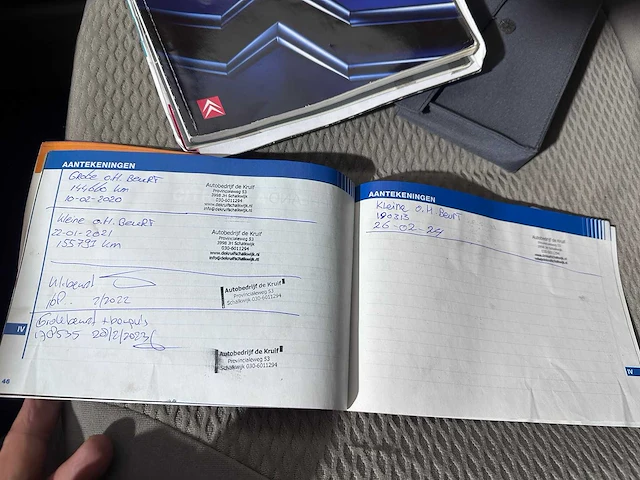 AANTEKENINGEN
Grote o.H. Beurt
144000 km
10-02-2020
Autobedrijf de Kruif
Provincialeweg 53
3998 JH Schalkwijk
030-6011294
www.dekruifschalkwijk.nl
info@dekruifschalkwijk.nl
Kleine o.H. Beurt
22-01-2021
155791 km
Autobedrijf de Kruif
Provincialeweg 53
3998 JH Schalkwijk
030-6011294
www.dekruifschalkwijk.nl
info@dekruifschalkwijk.nl
2/2022
Autobedrijf de Kruif
Provincialeweg 53
Schalkwijk 030-6011294
178535 28/2/2023
Autobedrijf de Kruif
Provincialeweg 53
Schalkwijk 030-6011294
IV
46
AANTEKENINGEN
Kleine o.H Beurt
190313
26-02-24
IV